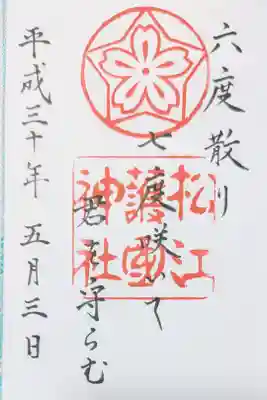 六度散り
七度咲いて
君を守らむ
松江
護國
神社
平成三十年 五月三日